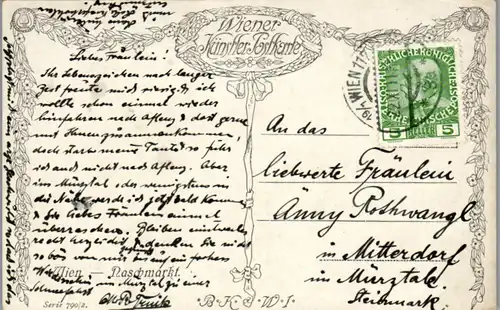 Wiener
Künstler-Postkarte
Liebes Fräulein!
Ihr Lebenszeichen nach langer
Zeit freute mich riesig & ich
wollte schon einmal wieder
hineinfahren nach Aflenz & dort gerne
mit Ihnen zusammenkommen,
doch starb meine Tante & so fuhr
ich auch nicht nach Aflenz. Aber
ins Mürztal oder wenigstens in
die Nähe werde ich jetzt bald kommen
& Sie liebes Fräulein einmal
überraschen. Bleiben einstweilen
recht herzlich & denken Sie nicht
so bös von mir auf ein frohes
Wien — Naschmarkt.
im Mürztal zu einer
Serie 790/2.
B·K·W·I
WIEN
5 HELLER 5
An das
liebwerte Fräulein
Änny Rothwangl
in Mitterdorf
im Mürztale
Steiermark